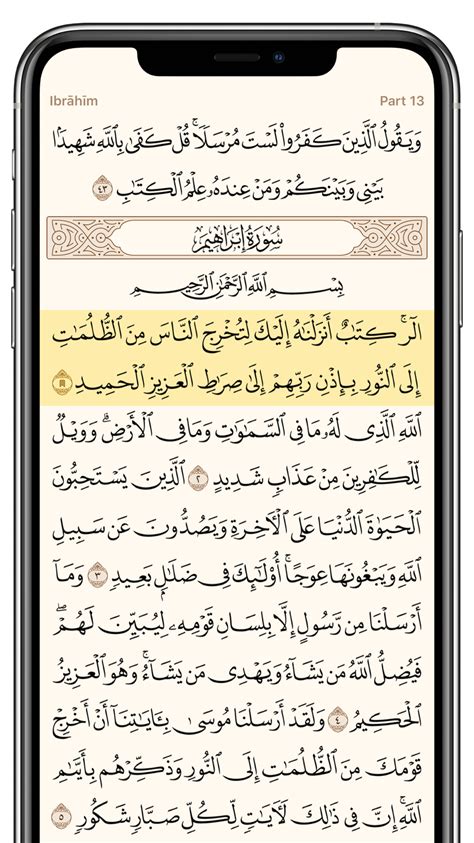 Ibrāhīm Part 13
وَيَقُولُ ٱلَّذِينَ كَفَرُواْ لَسۡتَ مُرۡسَلٗاۚ قُلۡ كَفَىٰ بِٱللَّهِ شَهِيدَۢا
بَيۡنِي وَبَيۡنَكُمۡ وَمَنۡ عِندَهُۥ عِلۡمُ ٱلۡكِتَٰبِ ٤٣
سُورَةُ إِبۡرَاهِيمَ
بِسۡمِ ٱللَّهِ ٱلرَّحۡمَٰنِ ٱلرَّحِيمِ
الٓرۚ كِتَٰبٌ أَنزَلۡنَٰهُ إِلَيۡكَ لِتُخۡرِجَ ٱلنَّاسَ مِنَ ٱلظُّلُمَٰتِ
إِلَى ٱلنُّورِ بِإِذۡنِ رَبِّهِمۡ إِلَىٰ صِرَٰطِ ٱلۡعَزِيزِ ٱلۡحَمِيدِ
ٱللَّهِ ٱلَّذِي لَهُۥ مَا فِي ٱلسَّمَٰوَٰتِ وَمَا فِي ٱلۡأَرۡضِۗ وَوَيۡلٞ
لِّلۡكَٰفِرِينَ مِنۡ عَذَابٖ شَدِيدٍ ٢ ٱلَّذِينَ يَسۡتَحِبُّونَ
ٱلۡحَيَوٰةَ ٱلدُّنۡيَا عَلَى ٱلۡأٓخِرَةِ وَيَصُدُّونَ عَن سَبِيلِ
ٱللَّهِ وَيَبۡغُونَهَا عِوَجًاۚ أُوْلَٰٓئِكَ فِي ضَلَٰلِۭ بَعِيدٖ ٣ وَمَآ
أَرۡسَلۡنَا مِن رَّسُولٍ إِلَّا بِلِسَانِ قَوۡمِهِۦ لِيُبَيِّنَ لَهُمۡۖ
فَيُضِلُّ ٱللَّهُ مَن يَشَآءُ وَيَهۡدِي مَن يَشَآءُۚ وَهُوَ ٱلۡعَزِيزُ
ٱلۡحَكِيمُ ٤ وَلَقَدۡ أَرۡسَلۡنَا مُوسَىٰ بِـَٔايَٰتِنَآ أَنۡ أَخۡرِجۡ
قَوۡمَكَ مِنَ ٱلظُّلُمَٰتِ إِلَى ٱلنُّورِ وَذَكِّرۡهُم بِأَيَّىٰمِ
ٱللَّهِۚ إِنَّ فِي ذَٰلِكَ لَأٓيَٰتٖ لِّكُلِّ صَبَّارٖ شَكُورٖ ٥